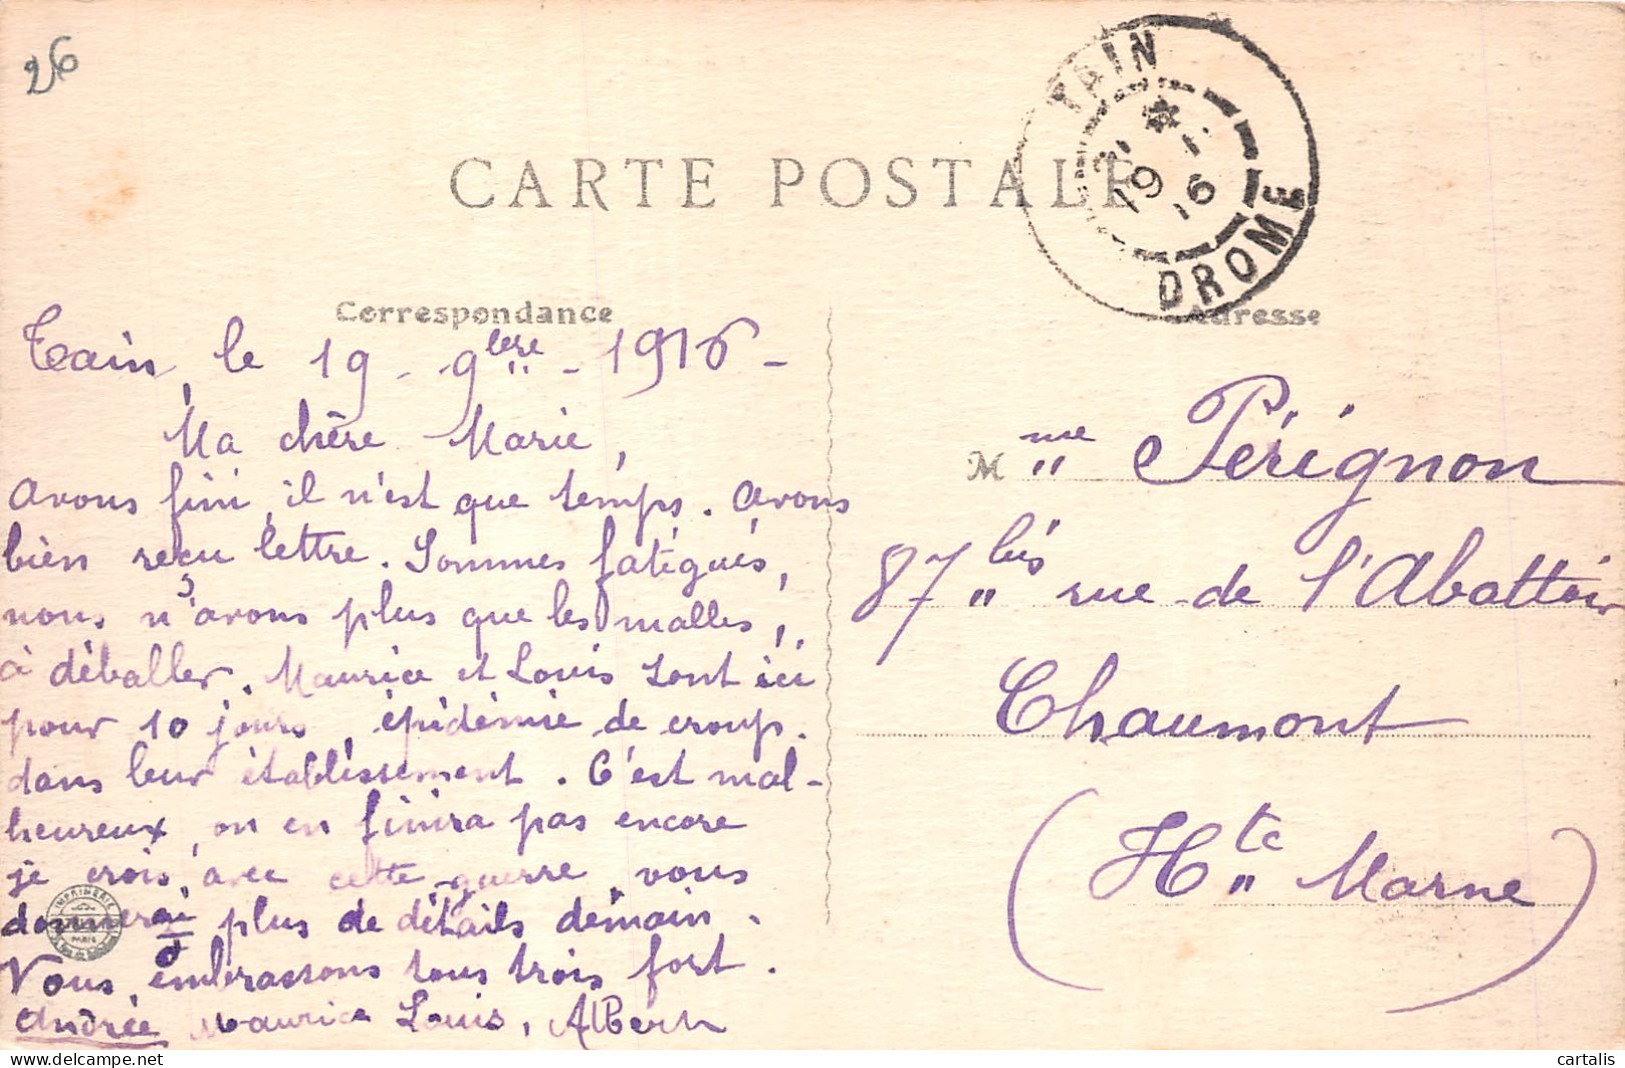 26
CARTE POSTALE
TAIN
19
16
DROME
Correspondance
Adresse
Tain, le 19 - 9bre - 1916 -
Ma chère Marie,
avons fini, il n'est que temps. avons
bien reçu lettre. Sommes fatigués,
nous n'avons plus que les malles,
à déballer. Maurice et Louis sont ici
pour 10 jours, épidémie de croup.
dans leur établissement. C'est mal-
heureux, on en finira pas encore
je crois, avec cette guerre, vous
donnerai plus de détails demain.
Vous embrassons tous trois fort.
Andrée Maurice Louis, Albert
IMPRIMERIE
PARIS
Mme Pérignon
87 bis rue de l'Abattoir
Chaumont
(Hte Marne)
cartalis